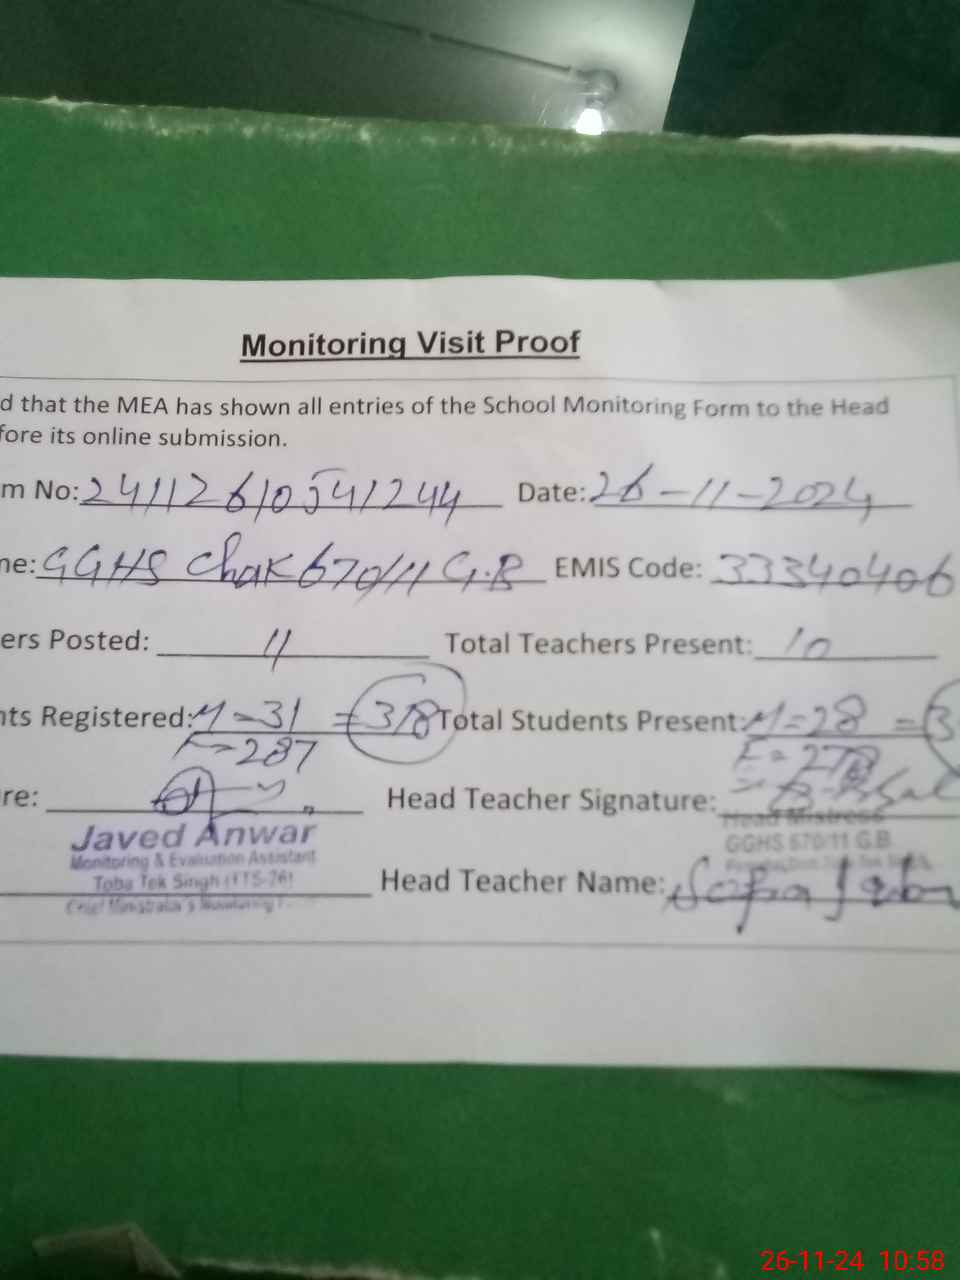 Monitoring Visit Proof
d that the MEA has shown all entries of the School Monitoring Form to the Head
fore its online submission.
m No: 24112610541244 Date: 26-11-2024
ne: GGHS Chak 670/11 G.B EMIS Code: 33340406
ers Posted: 11 Total Teachers Present: 10
nts Registered: M-31 = 318 Total Students Present: M=28 = 3
F=287 F=278
re: Head Teacher Signature:
Javed Anwar Head Mistress
Monitoring & Evaluation Assistant GGHS 670/11 G.B
Toba Tek Singh (TTS-26) Head Teacher Name: